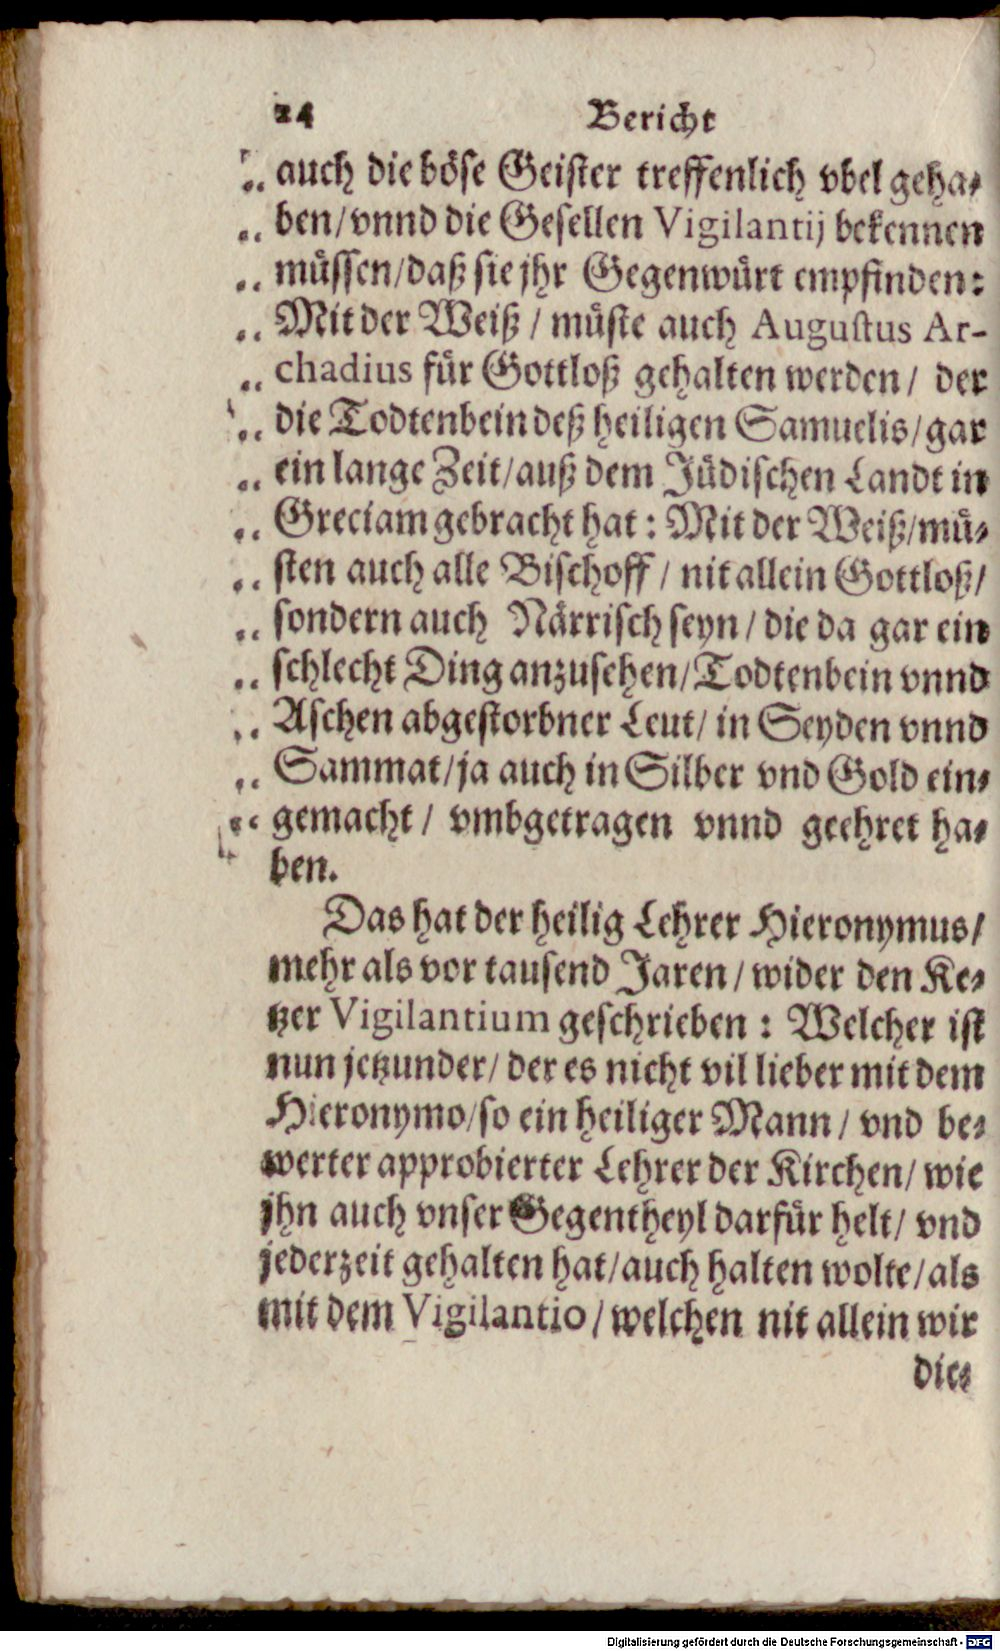 24 Bericht
„ auch die böse Geister treffenlich vbel geha-
„ ben/vnnd die Gesellen Vigilantij bekennen
„ müssen/daß sie jhr Gegenwürt empfinden:
„ Mit der Weiß / müste auch Augustus Ar-
„ chadius für Gottloß gehalten werden/ der
„ die Todtenbein deß heiligen Samuelis/gar
„ ein lange Zeit/auß dem Jüdischen Landt in
„ Greciam gebracht hat: Mit der Weiß/mü-
„ sten auch alle Bischoff / nit allein Gottloß/
„ sondern auch Närrisch seyn / die da gar ein
„ schlecht Ding anzusehen/Todtenbein vnnd
„ Aschen abgestorbner Leut/ in Seyden vnnd
„ Sammat/ja auch in Silber vnd Gold ein-
„ gemacht / vmbgetragen vnnd geehret ha-
ben.
Das hat der heilig Lehrer Hieronymus/
mehr als vor tausend Jaren / wider den Ke-
tzer Vigilantium geschrieben : Welcher ist
nun jetzunder/ der es nicht vil lieber mit dem
Hieronymo/so ein heiliger Mann / vnd be-
werter approbierter Lehrer der Kirchen/ wie
jhn auch vnser Gegentheyl darfür helt/ vnd
jederzeit gehalten hat/auch halten wolte/als
mit dem Vigilantio / welchen nit allein wir
die-
Digitalisierung gefördert durch die Deutsche Forschungsgemeinschaft - DFG